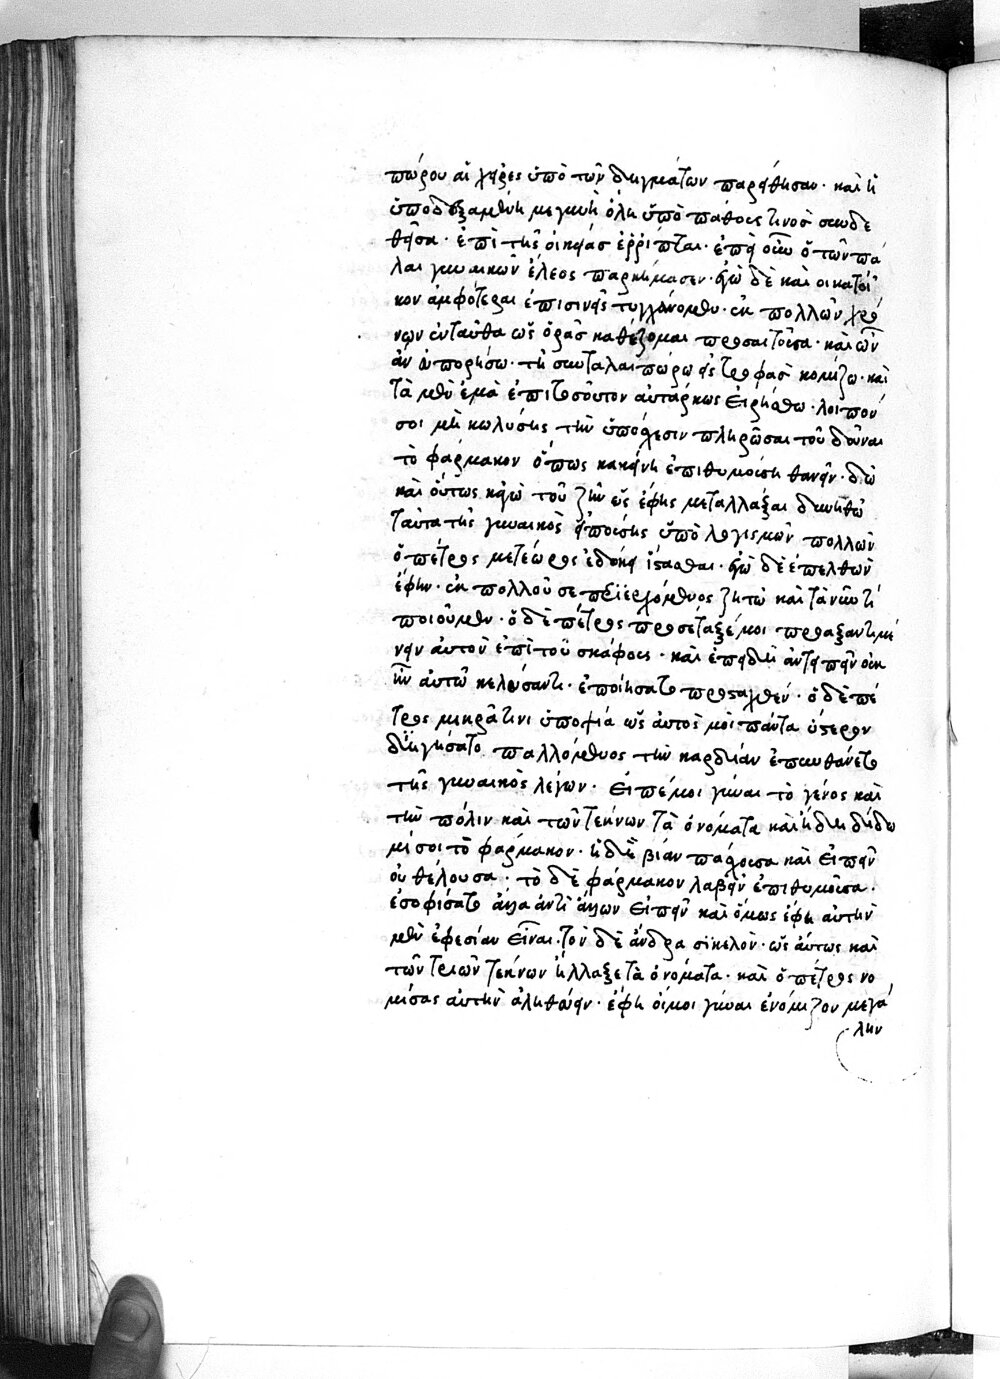 πώρου αἱ χεῖρες ὑπὸ τῶν δηγμάτων παρείθησαν· καὶ ἡ
ὑποδεξαμένη με γυνὴ ὅλη ὑπὸ πάθους τινὸς συνδε
θεῖσα· ἐπὶ τῆς οἰκείας ἔρριπται· ἐπεὶ οὖν ὁ τῶν πά
λαι γυναικῶν ἔλεος παρήκμασεν· ἐγὼ δὲ καὶ ἡ κατοί
κον ἀμφότεραι ἐπισινεῖς τυγχάνομεν· ἐκ πολλῶν χρό
νων ἐνταῦθα ὡς ὁρᾶς καθέζομαι προσαιτοῦσα· καὶ ὧν
ἂν εὐπορήσω· τῇ συνταλαιπώρῳ εἰς τροφὰς κομίζω· καὶ
τὰ μὲν ἐμὰ ἐπὶ τοσοῦτον αὐτάρκως εἰρήσθω· λοιπόν
σοι μὴ κωλύσῃς τὴν ὑπόσχεσιν πληρῶσαι τοῦ δοῦναι
τὸ φάρμακον ὅπως κἀκείνη ἐπιθυμούσῃ θανεῖν· δῶ
καὶ οὕτως κἀγὼ τοῦ ζῆν ὡς ἔφης μεταλλάξαι δυνηθῶ
ταῦτα τῆς γυναικὸς εἰπούσης ὑπὸ λογισμῶν πολλῶν
ὁ πέτρος μετέωρος ἐδόκει ἵστασθαι· ἐγὼ δὲ ἐπελθὼν
ἔφην· ἐκ πολλοῦ σε περιερχόμενος ζητῶ καὶ τὰ νῦν τί
ποιοῦμεν· ὁ δὲ πέτρος προσέταξέ μοι προάξαντι μέ
νειν αὐτὸν ἐπὶ τοῦ σκάφους· καὶ ἐπειδὴ ἀντειπεῖν οὐκ
ἦν αὐτῷ κελεύσαντι· ἐποίησα τὸ προσταχθέν· ὁ δὲ πέ
τρος μικρᾷ τινι ὑποψίᾳ ὡς αὐτός μοι πάντα ὕστερον
διηγήσατο παλλόμενος τὴν καρδίαν ἐπυνθάνετο
τῆς γυναικὸς λέγων· εἰπέ μοι γύναι τὸ γένος καὶ
τὴν πόλιν καὶ τῶν τέκνων τὰ ὀνόματα καὶ ἤδη δίδω
μί σοι τὸ φάρμακον· ἡ δὲ βίαν πάσχουσα καὶ εἰπεῖν
οὐ θέλουσα· τὸ δὲ φάρμακον λαβεῖν ἐπιθυμοῦσα·
ἐσοφίσατο ἄλλα ἀντὶ ἄλλων εἰπεῖν καὶ ὅμως ἔφη αὐτὴν
μὲν ἐφεσίαν εἶναι· τὸν δὲ ἄνδρα σικελόν· ὡς αὕτως καὶ
τῶν τριῶν τέκνων ἤλλαξε τὰ ὀνόματα· καὶ ὁ πέτρος νο
μίσας αὐτὴν ἀληθεύειν· ἔφη οἴμοι γύναι ἐνόμιζον μεγά
λην